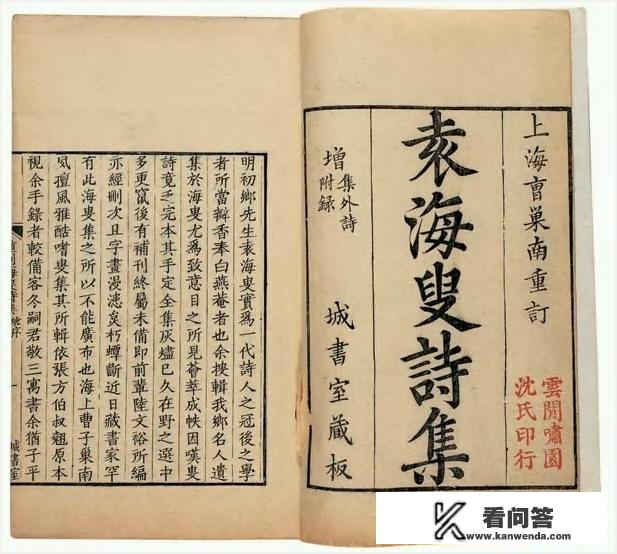 上海曹巢南重訂
袁海叟詩集
增集外詩附録
城書室蔵板
雲間嘯園
沈氏印行
明初鄉先生袁海叟實爲一代詩人之冠後之學
者所當瓣香奉白燕菴者也余搜輯我鄉名人遺
集於海叟尤爲致意目之所見薈萃成帙因嘆叟
詩竟乏完本其手定全集灰燼已久在野之選中
多更竄後有補刊終屬未備即前輩陸文裕所編
亦經刪次且字畫漫漶矣朽蟫斷近日藏書家罕
有此海叟集之所以不能廣布也海上曹子巢南
夙擅風雅酷嗜叟集其所輯依張方伯叔翹原本
視余手錄者較備客冬嗣君敬三寓書余猶子平
城書室
看问答
www.kanwenda.com